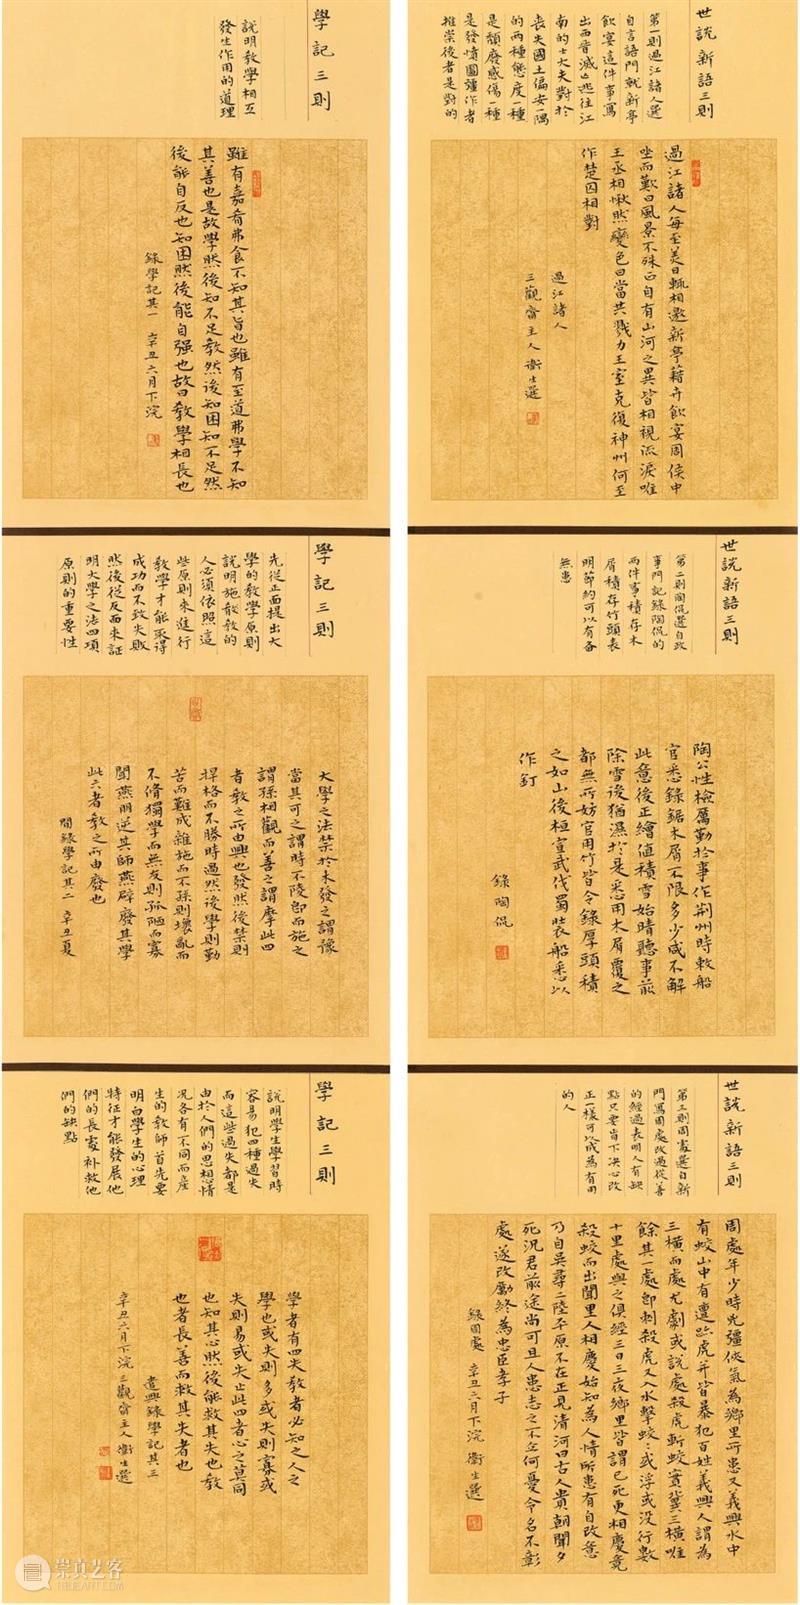 世說新語三則
第一則過江諸人選
自言語門就新亭
飲宴這件事寫
出西晉滅亡逃往江
南的士大夫對於
喪失國土偏安一隅
的两種態度一種
是頹廢感傷一種
是發憤圖疆作者
推崇後者是對的
過江諸人每至美日輒相邀新亭藉卉飲宴周侯中
坐而歎曰風景不殊正自有山河之異皆相視流淚唯
王丞相愀然變色曰當共戮力王室克復神州何至
作楚囚相對
過江諸人
三觀齋主人衛生選
世說新語三則
第二則陶侃選自政
事門記錄陶侃的
两件事積存木
屑積存竹頭表
明節約可以有备
無患
陶公性檢厲勤於事作荆州時敕船
官悉錄鋸木屑不限多少咸不解
此意後正繪值積雪始晴聽事前
除雪後猶濕於是悉用木屑覆之
都無所妨官用竹皆令錄厚頭積
之如山後桓宣武伐蜀裝船悉以
作釘
錄陶侃
世說新語三則
第三則周處選自新
門寫周處改過從善
的經過表明人有缺
點只要肯下决心改
正一樣可以成為有用
的人
周處年少時凶彊俠氣為鄉里所患又義興水中
有蛟山中有邅跡虎并皆暴犯百姓義興人謂為
三横而處尤劇或說處殺虎斬蛟實冀三横唯
餘其一處即刺殺虎又入水擊蛟:或浮或没行數
十里處與之俱經三日三夜鄉里皆謂已死更相慶竟
殺蛟而出聞里人相慶始知為人情所患有自改意
乃自吳尋二陸平原不在正見清河曰古人貴朝聞夕
死况君前途尚可且人患志之不立何憂令名不彰
處遂改勵終為忠臣孝子
錄周處 辛丑六月下浣 衛生選
學記三則
說明教學相互
發生作用的道理
雖有嘉肴弗食不知其旨也雖有至道弗學不知
其善也是故學然後知不足教然後知困知不足然
後能自反也知困然後能自强也故曰教學相長也
錄學記其一 辛丑六月下浣
學記三則
先從正面提出大
學的教學原則
說明施教的
人必須依照這
些原則來進行
教學才能取得
成功而不致失敗
然後從反面來証
明大學之法四項
原則的重要性
大學之法禁於未發之謂豫
當其可之謂時不陵節而施之
謂孫相觀而善之謂摩此四
者教之所由興也發然後禁則
捍格而不勝時過然後學則勤
苦而難成雜施而不孫則壞亂而
不脩獨學而無友則孤陋而寡
聞燕朋逆其師燕辟廢其學
此六者教之所由廢也
間錄學記其二 辛丑夏
學記三則
說明學生學習時
容易犯四種過失
而這些過失都是
由於人們的思想情
况各有不同而產
生的教師首先要
明白學生的心理
特征才能發展他
們的長處補救他
們的缺點
學者有四失教者必知之人之
學也或失則多或失則寡或
失則易或失止此四者心之莫同
也知其心然後能救其失也教
也者長善而救其失者也
遣興錄學記其三
辛丑六月下浣三觀齋主人衛生選
崇真艺客